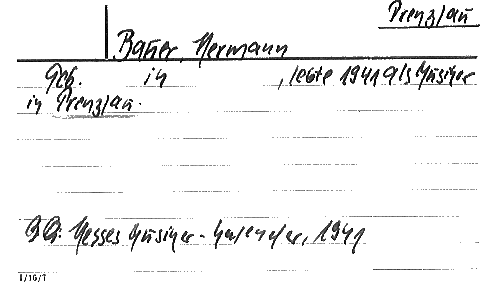 Prenzlau
Bauer, Hermann
Geb. in , lebte 1941 als Musiker
in Prenzlau.
QQ: Hesses Musiker-Kalender, 1941
1/16/7